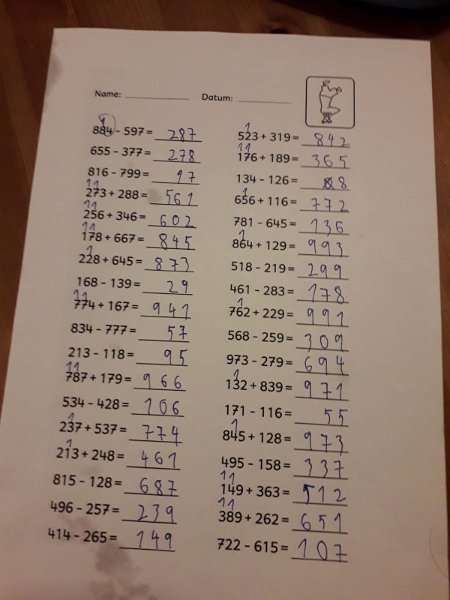 Name: ____________ Datum: ____________
884 - 597 = 287
655 - 377 = 278
816 - 799 = 17
273 + 288 = 561
256 + 346 = 602
178 + 667 = 845
228 + 645 = 873
168 - 139 = 29
774 + 167 = 941
834 - 777 = 57
213 - 118 = 95
787 + 179 = 966
534 - 428 = 106
237 + 537 = 774
213 + 248 = 461
815 - 128 = 687
496 - 257 = 239
414 - 265 = 149
523 + 319 = 842
176 + 189 = 365
134 - 126 = 8
656 + 116 = 772
781 - 645 = 136
864 + 129 = 993
518 - 219 = 299
461 - 283 = 178
762 + 229 = 991
568 - 259 = 309
973 - 279 = 694
132 + 839 = 971
171 - 116 = 55
845 + 128 = 973
495 - 158 = 337
149 + 363 = 512
389 + 262 = 651
722 - 615 = 107